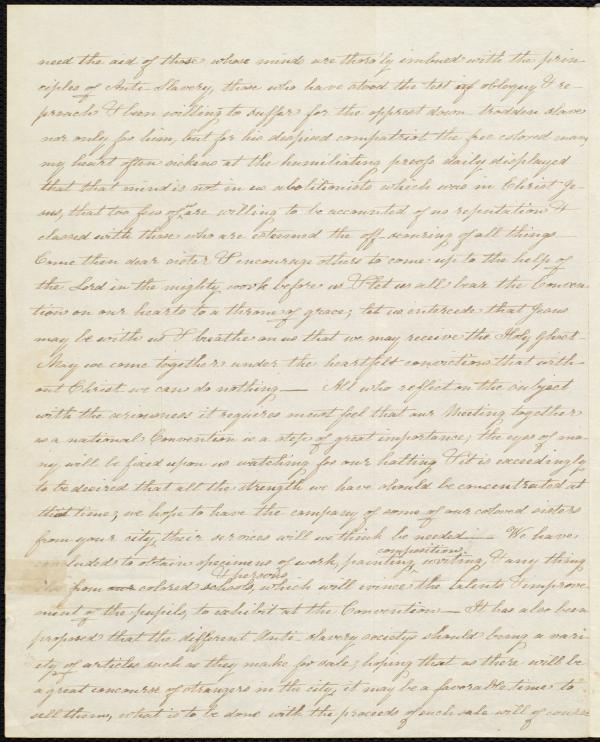 need the aid of those whose minds are thoro'ly imbued with the prin-
ciples of Anti-Slavery, those who have stood the test of obloquy & re-
proach & been willing to suffer for the opprest down trodden slave
nor only for him, but for his despised compatriot the free colored man,
my heart often sickens at the humiliating proofs daily displayed
that that mind is not in us abolitionists which was in Christ Je-
sus, that too few of us are willing to be accounted of no reputation &
classed with those who are esteemed the off-scouring of all things
Come then dear sister & encourage others to come up to the help of
the Lord in the mighty work before us & let us all bear the Conven-
tion on our hearts to a throne of grace; let us intercede that Jesus
may be with us & breathe on us that we may receive the Holy Ghost
May we come together under the heartfelt conviction that with-
out Christ we can do nothing — All who reflect on the subject
with the seriousness it requires must feel that our Meeting together
as a national Convention is a step of great importance; the eyes of ma-
ny will be fixed upon us watching for our halting & it is exceedingly
to be desired that all the strength we have should be concentrated at
that time; we hope to have the company of some of our colored sisters
from your city, their services will we think be needed — We have
concluded to obtain specimens of work, painting, composition, writing, & any thing
else from our colored schools, & persons which will evince the talents & improve-
ment of the pupils, to exhibit at the Convention — It has also been
proposed that the different Anti-slavery societys should bring a vari-
ety of articles such as they make for sale; hoping that as there will be
a great concourse of strangers in the city, it may be a favorable time to
sell them, what is to be done with the proceeds of such sale will of course